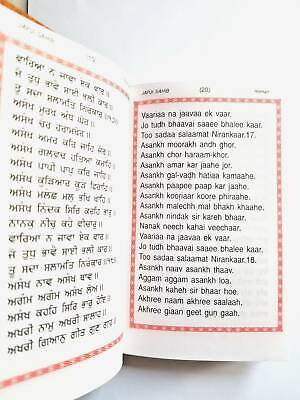 JAPJI SAHIB
ਵਾਰਿਆ ਨ ਜਾਵਾ ਏਕ ਵਾਰ॥
ਜੋ ਤੁਧੁ ਭਾਵੈ ਸਾਈ ਭਲੀ ਕਾਰ॥
ਤੂ ਸਦਾ ਸਲਾਮਤਿ ਨਿਰੰਕਾਰ॥
ਅਸੰਖ ਮੂਰਖ ਅੰਧ ਘੋਰ॥
ਅਸੰਖ ਚੋਰ ਹਰਾਮਖੋਰ॥
ਅਸੰਖ ਅਮਰ ਕਰਿ ਜਾਹਿ ਜੋਰ॥
ਅਸੰਖ ਗਲਵਢ ਹਤਿਆ ਕਮਾਹਿ॥
ਅਸੰਖ ਪਾਪੀ ਪਾਪੁ ਕਰਿ ਜਾਹਿ॥
ਅਸੰਖ ਕੂੜਿਆਰ ਕੂੜੇ ਫਿਰਾਹਿ॥
ਅਸੰਖ ਮਲੇਛ ਮਲੁ ਭਖਿ ਖਾਹਿ॥
ਅਸੰਖ ਨਿੰਦਕ ਸਿਰਿ ਕਰਹਿ ਭਾਰੁ॥
ਨਾਨਕੁ ਨੀਚੁ ਕਹੈ ਵੀਚਾਰੁ॥
ਵਾਰਿਆ ਨ ਜਾਵਾ ਏਕ ਵਾਰ॥
ਜੋ ਤੁਧੁ ਭਾਵੈ ਸਾਈ ਭਲੀ ਕਾਰ॥
ਤੂ ਸਦਾ ਸਲਾਮਤਿ ਨਿਰੰਕਾਰ॥
ਅਸੰਖ ਨਾਵ ਅਸੰਖ ਥਾਵ॥
ਅਗੰਮ ਅਗੰਮ ਅਸੰਖ ਲੋਅ॥
ਅਸੰਖ ਕਹਹਿ ਸਿਰਿ ਭਾਰੁ ਹੋਇ॥
ਅਖਰੀ ਨਾਮੁ ਅਖਰੀ ਸਾਲਾਹ॥
ਅਖਰੀ ਗਿਆਨੁ ਗੀਤ ਗੁਣ ਗਾਹ॥
JAPJI SAHIB (20)
Vaariaa na jaavaa ek vaar.
Jo tudh bhaavai saaee bhalee kaar.
Too sadaa salaamat Nirankaar.17.
Asankh moorakh andh ghor.
Asankh chor haraam-khor.
Asankh amar kar jaahe jor.
Asankh gal-vadh hatiaa kamaahe.
Asankh paapee paap kar jaahe.
Asankh kooriaar koore phiraahe.
Asankh malechh mal bhakh khaahe.
Asankh nindak sir kareh bhaar.
Naanak neech kahai veechaar.
Vaariaa na jaavaa ek vaar.
Jo tudh bhaavai saaee bhalee kaar.
Too sadaa salaamat Nirankaar.18.
Asankh naav asankh thaav.
Aggam aggam asankh loa.
Asankh kaheh sir bhaar hoe.
Akhree naam akhree saalaah.
Akhree giaan geet gun gaah.